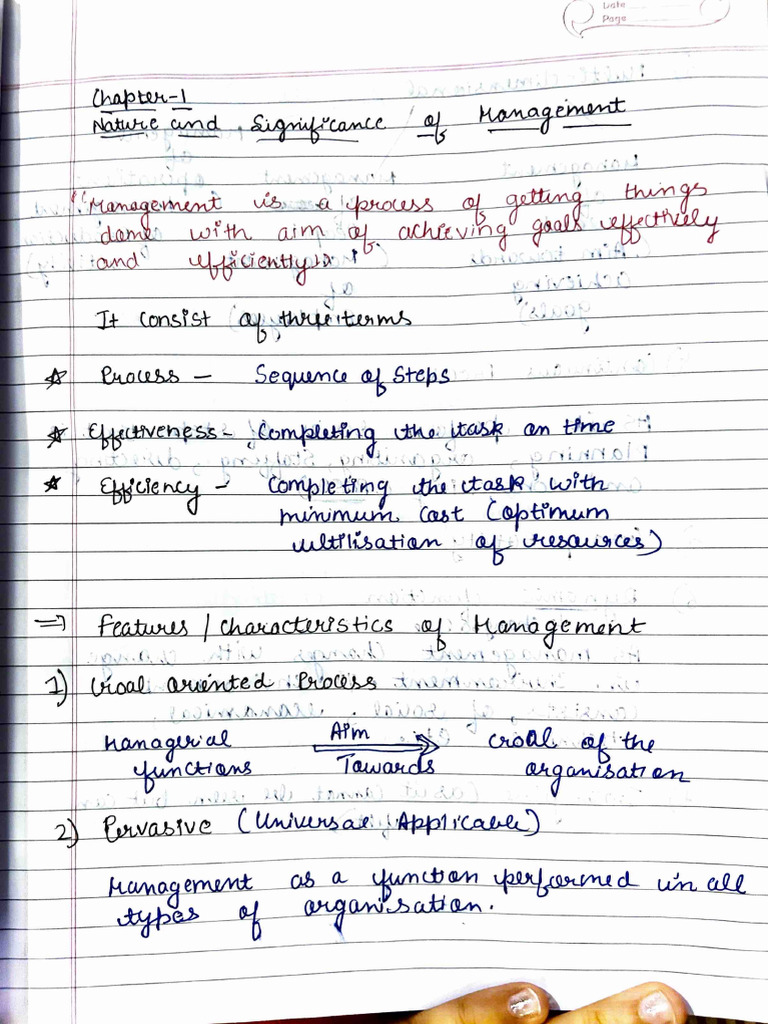 Date
Page
Chapter-1
Nature and Significance of Management
"Management is a process of getting things
done with aim of achieving goals effectively
and efficiently"
It consist of three terms
☆ Process - Sequence of Steps
☆ Effectiveness - Completing the task on time
☆ Efficiency - Completing the task with
minimum cost (optimum
ultilisation of resources)
⇒ Features / characteristics of Management
1) Goal oriented Process
Managerial Aim Goal of the
functions Towards organisation
2) Pervasive (Universal Applicable)
Management as a function performed in all
types of organisation.